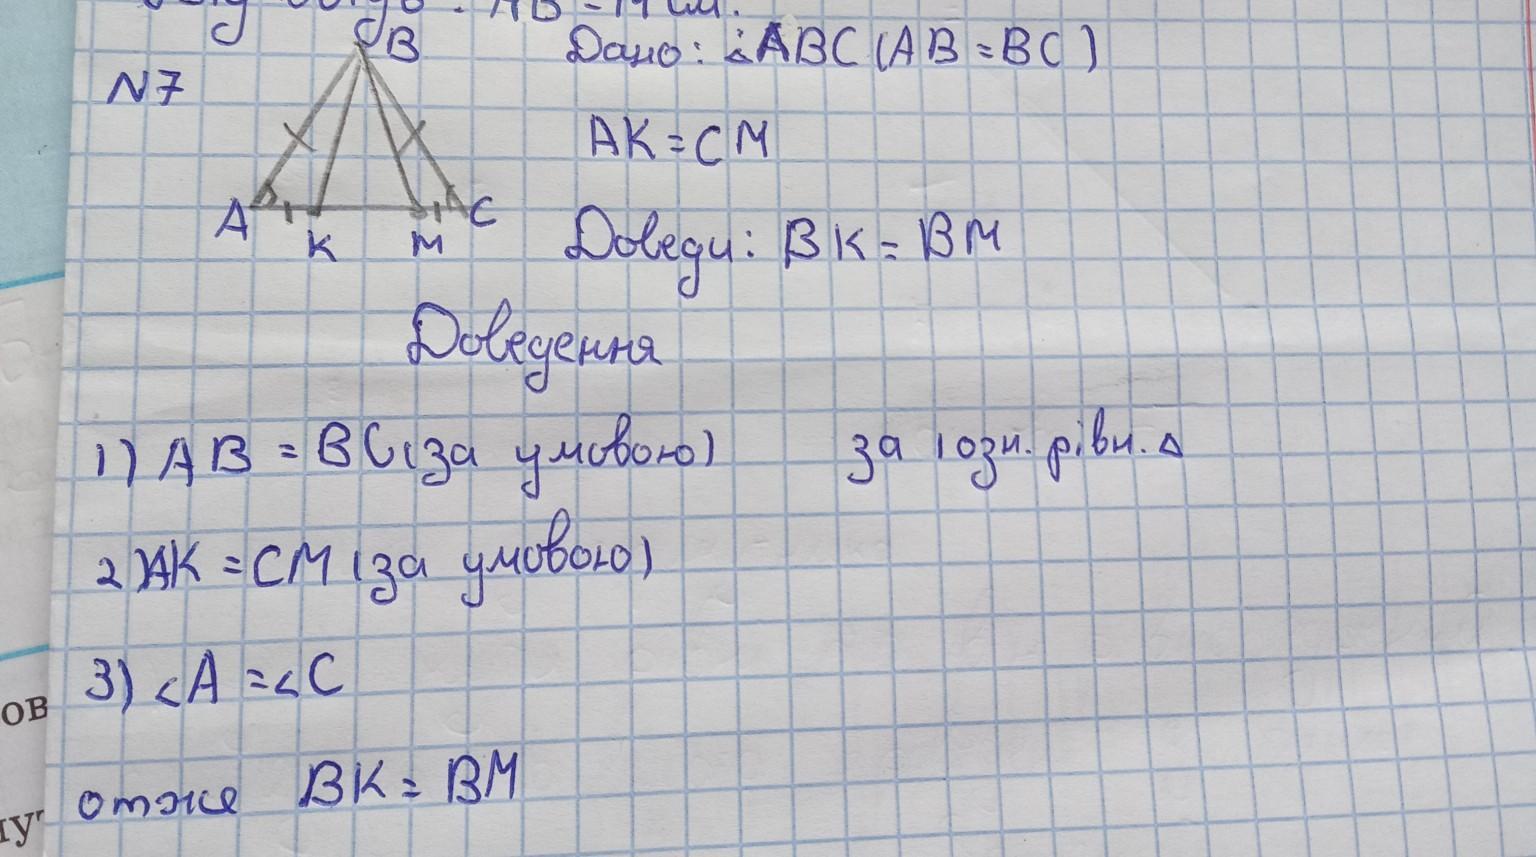 AB = 14 см.
N7
B
A
K
M
C
Дано: △ABC (AB = BC)
AK = CM
Доведи: BK = BM
Доведення
1) AB = BC (за умовою) за 1 озн. рівн. △
2) AK = CM (за умовою)
3) ∠A = ∠C
отже BK = BM
ов